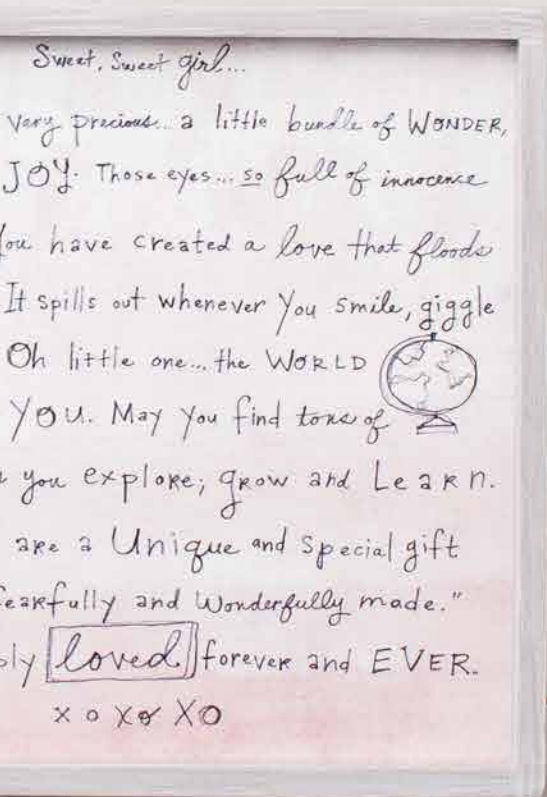 Sweet, Sweet girl...
Very precious... a little bundle of WONDER,
JOY. Those eyes... so full of innocence
You have created a love that floods
It spills out whenever you smile, giggle
Oh little one... the WORLD
YOU. May you find tons of
you explore, grow and Learn.
are a Unique and Special gift
fearfully and Wonderfully made."
loved forever and EVER.
x o x o X O